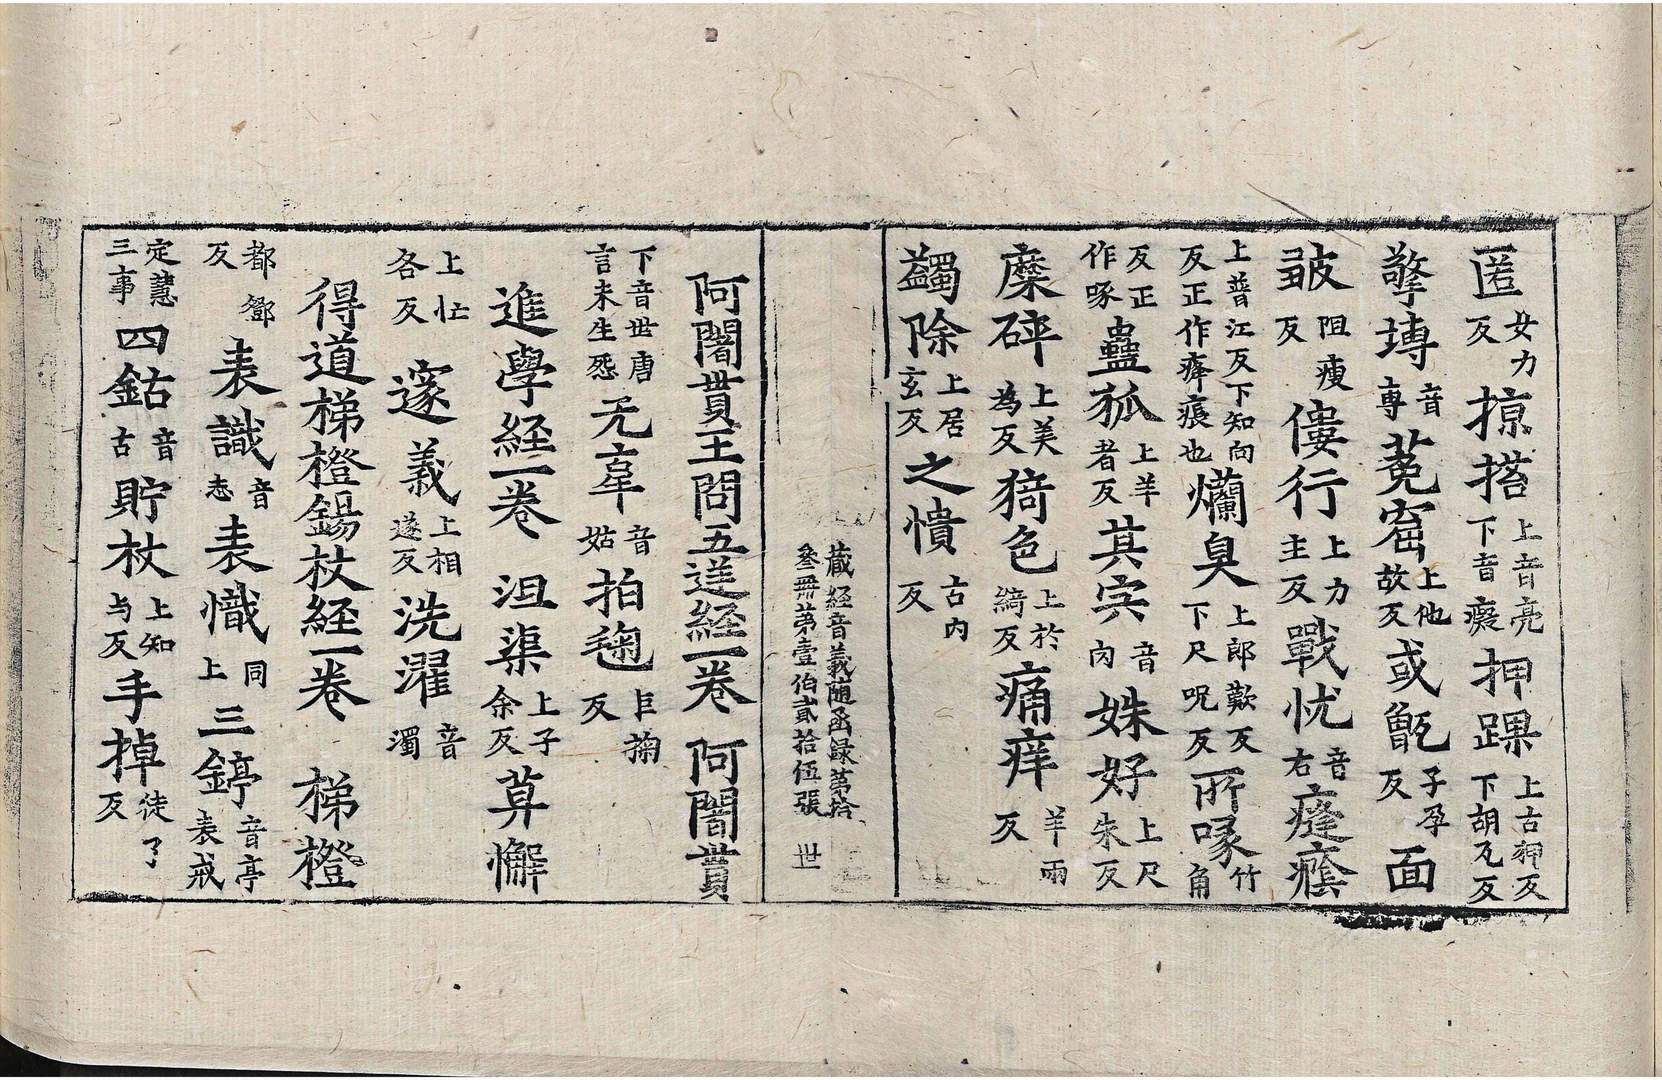 匿女力反掠搭上音亮下音癡押踝上古狎反下胡瓦反
擎塼音專菟窟上他故反或甑子孕反面
皷阻瘦反僂行上力主反戰忧音右癃㾮
上普江反下知向反正作瘴痕也爛臭上郎歎反下尺呪反所㖨竹角
反正作啄蠱狐上羊者反其宍音肉姝好上尺朱反
糜碎上美為反猗色上於綺反痛痒羊兩反
蠲除上居玄反之憒古內反
蔵経音義随函録第拾
叁冊第壹伯貳拾伍張 世
阿闍世貰王問五逆経一卷 阿闍貰
下音世唐言未生怨无辜音姑拍毱巨掬反
進學経一卷 沮渠上子余反萛懈
上忙各反 邃義上相遂反洗濯音濁
得道梯橙錫杖経一卷 梯橙
都鄧反 表識音志表幟同上三錞音亭表戒
定慧三事四鈷音古貯杖上知与反手掉徒了反